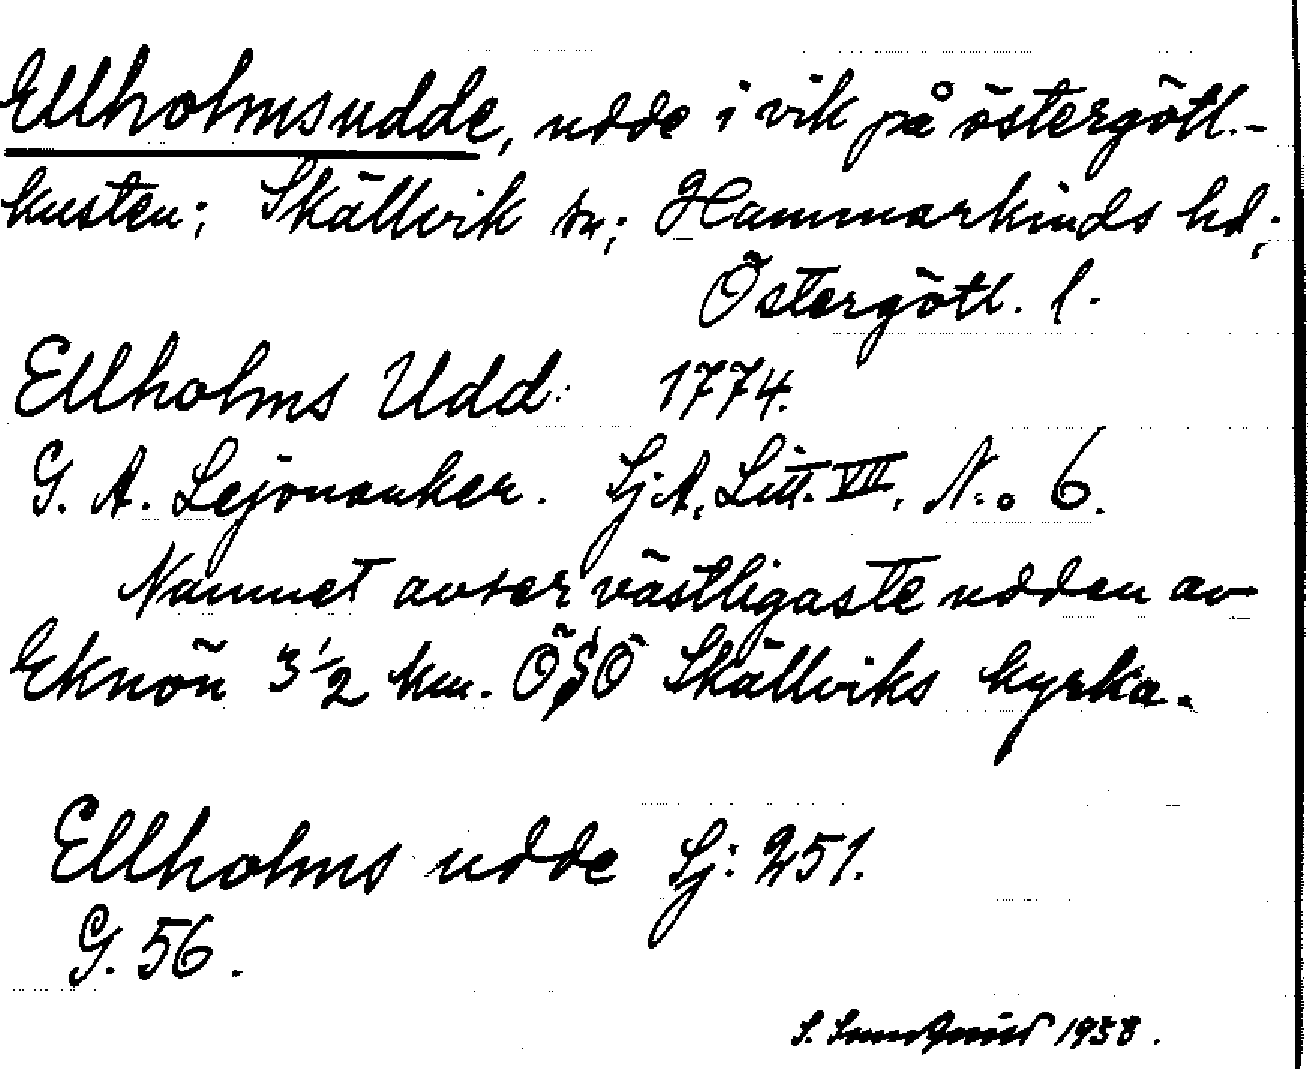 Ellholmsudde, udde i vik på östergötl.-
kusten; Skällvik sn; Hammarkinds hd;
Östergötl. l.
Ellholms Udd: 1774.
G. A. Lejonanker. Sj.A. Litt. VII, N.o 6.
Namnet avser västligaste udden av
Eknön 3 1/2 km. ÖSÖ Skällviks kyrka.
Ellholms udde Sj: 251.
G. 56.
S. 1958.